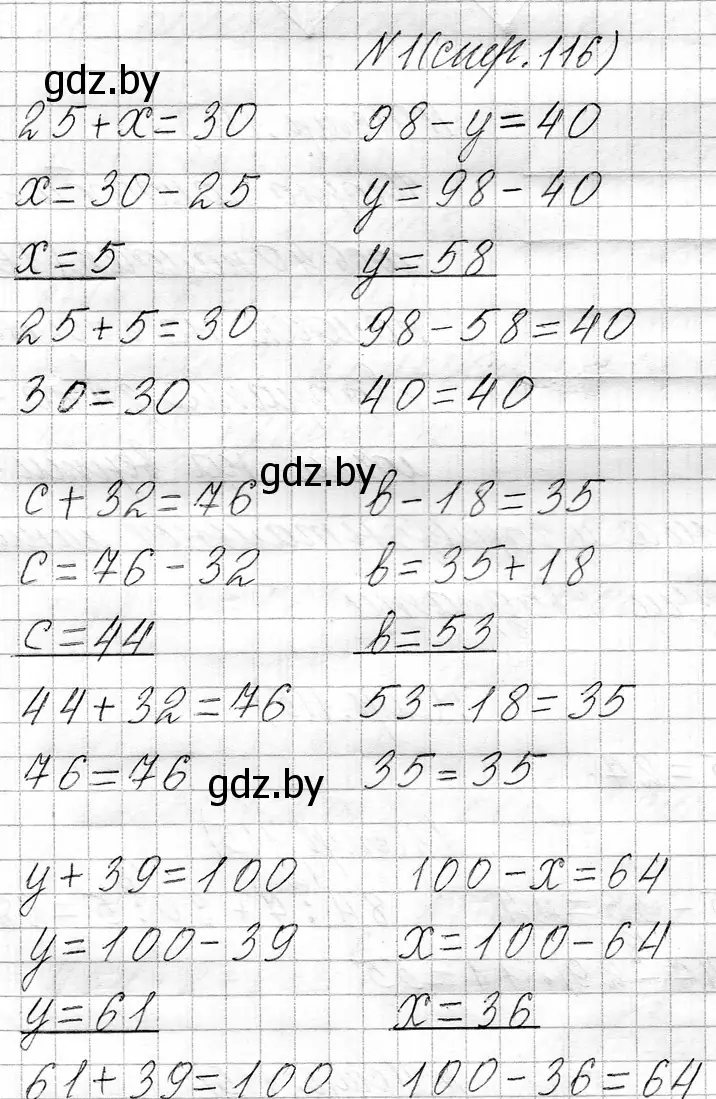 N1(стр.116)
gdz.by
25+x=30 98-y=40
x=30-25 y=98-40
x=5 y=58
25+5=30 98-58=40
30=30 40=40
gdz.by
c+32=76 b-18=35
c=76-32 b=35+18
c=44 b=53
44+32=76 53-18=35
76=76 35=35
gdz.by
y+39=100 100-x=64
y=100-39 x=100-64
y=61 x=36
61+39=100 100-36=64